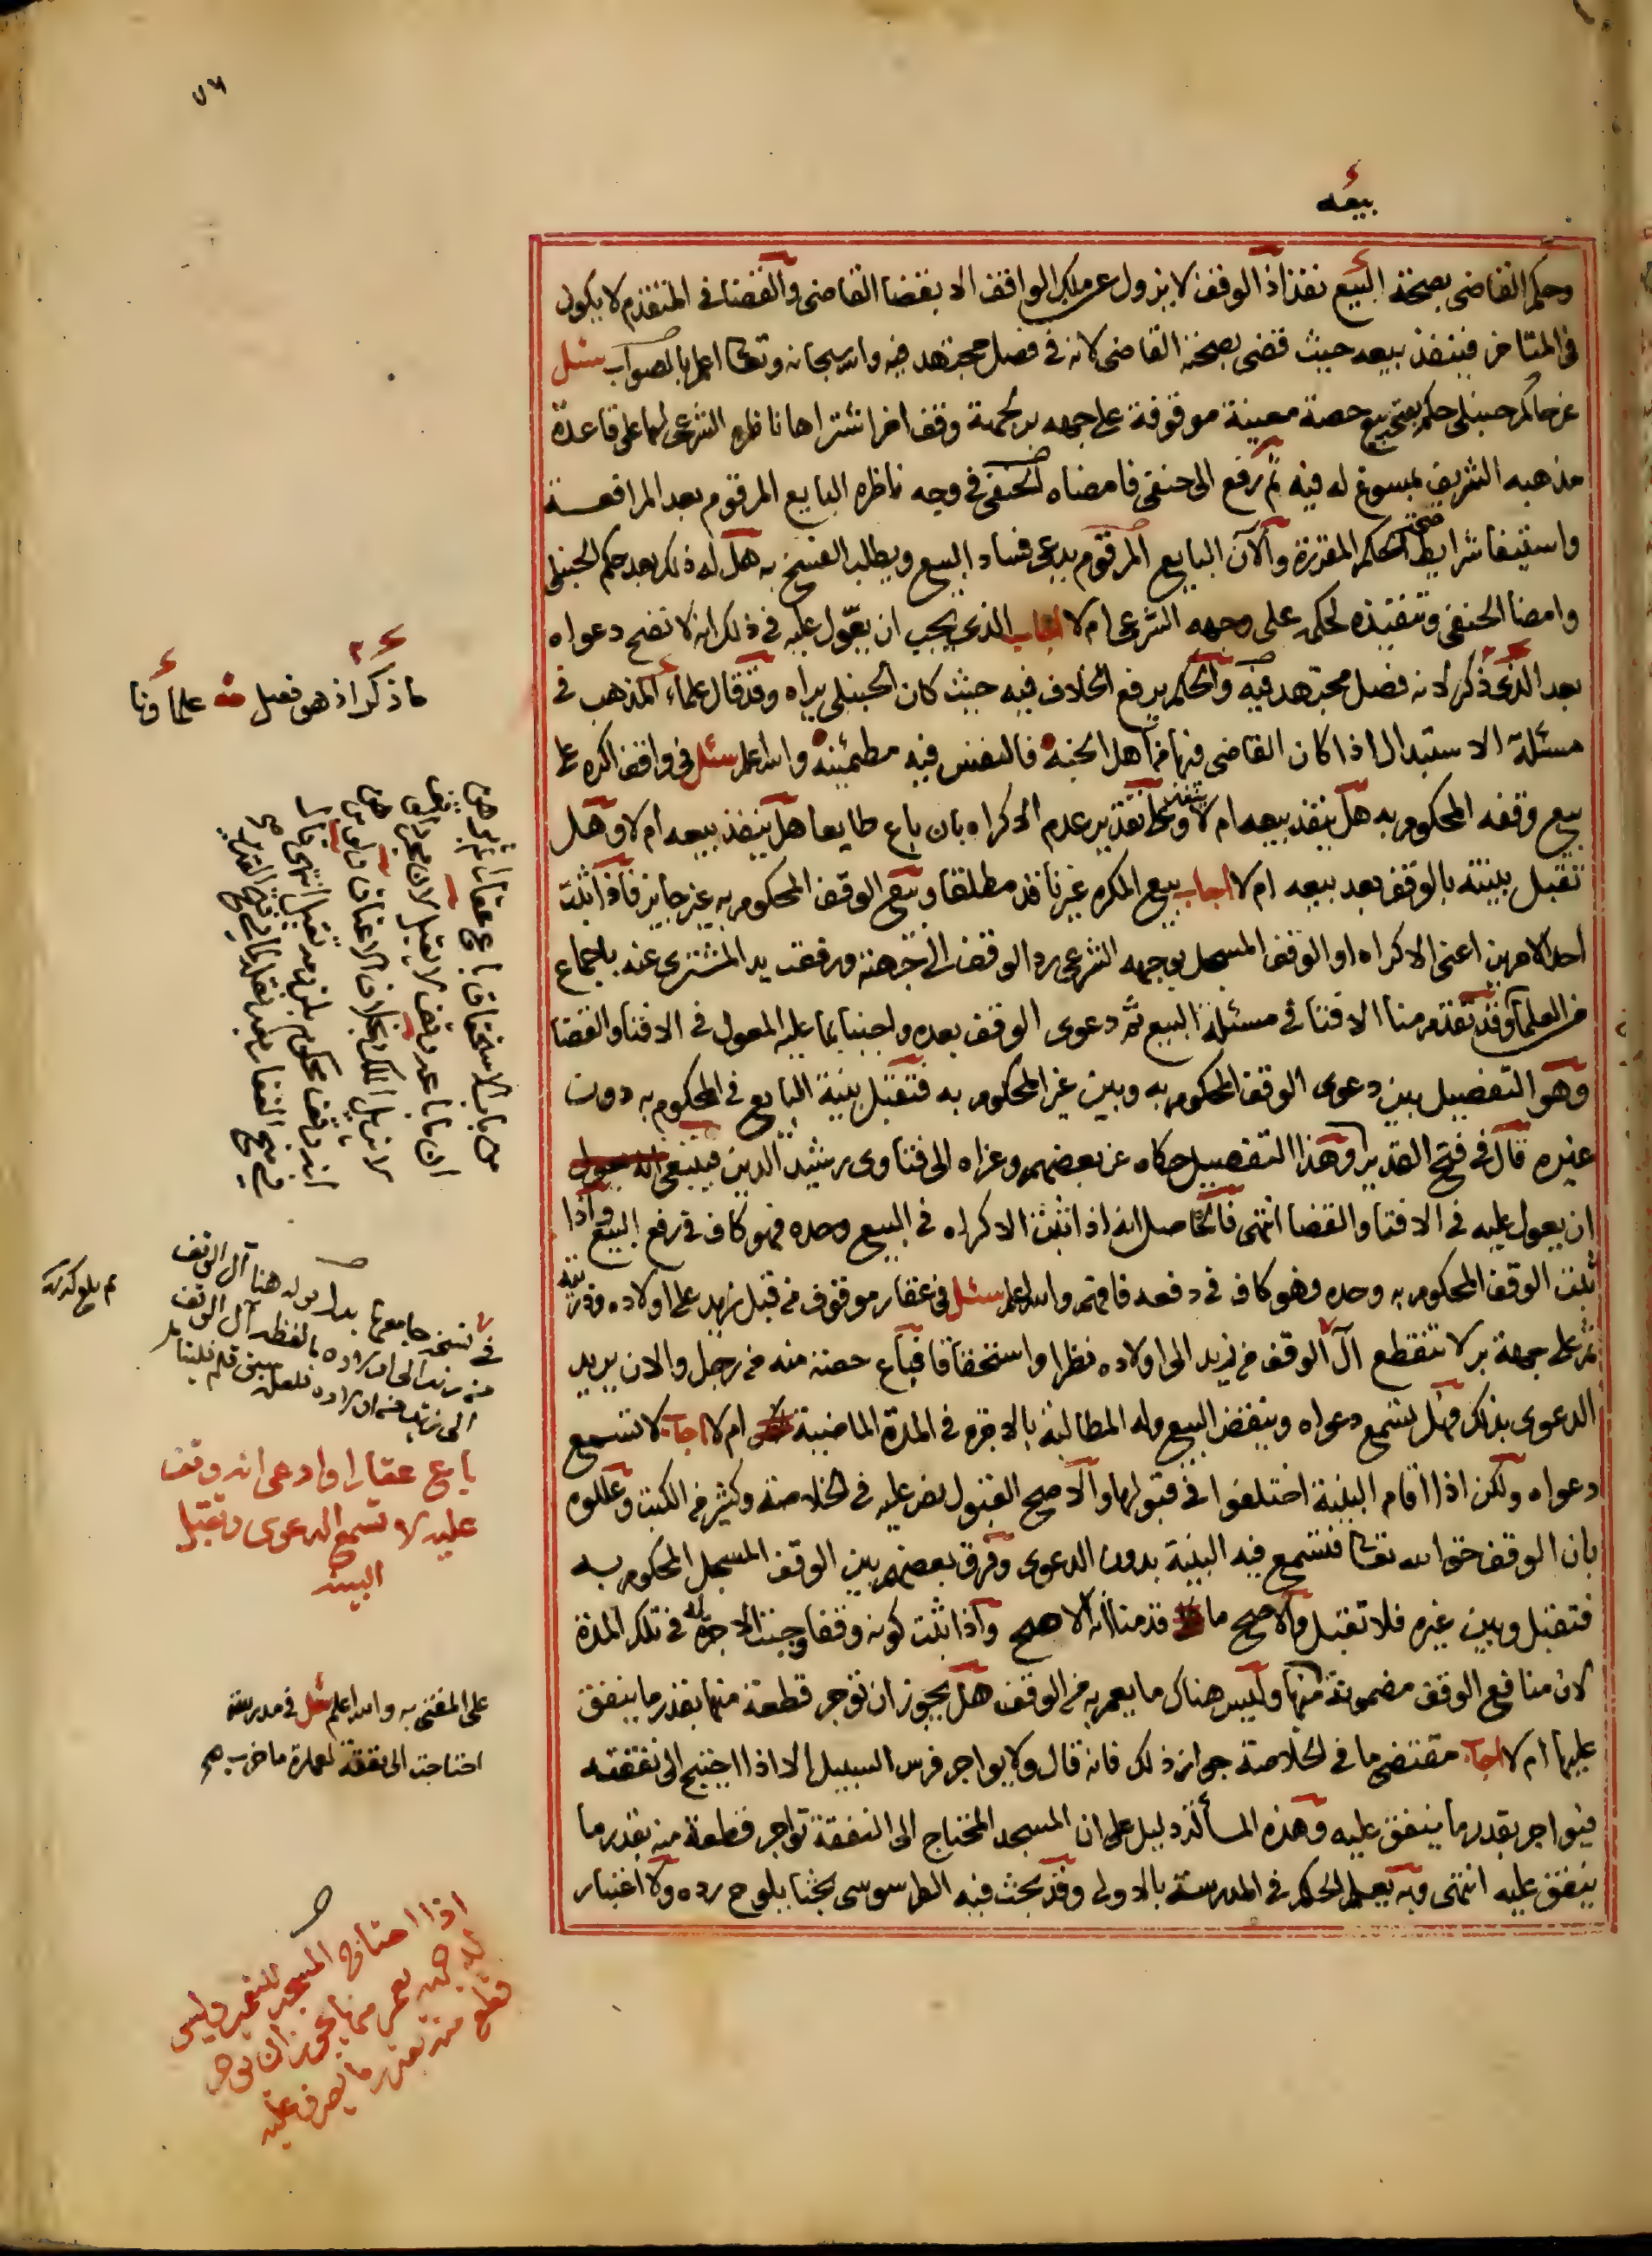 ٧٦
بيعه
وحكم القاضى بصحة البيع نفذ اذ الوقف لا يزول عن ملك الواقف الا بقضا القاضى والقضا فى المتقدم لا يكون
فى المتاخر فينفذ بيعه حيث قضى بصحته القاضى لانه فى فصل مجتهد فيه والله سبحانه وتعالى اعلم بالصواب سئل
عن حاكم حنبلى حكم بصحة بيع حصة معينة موقوفة على جهه بر لجهة وقف اخر اشتراها ناظره الشرعى لها على قاعدة
مذهبه الشريف بمسوغ له فيه ثم رفع الى حنفى فامضاه الحنفى فى وجه ناظره البايع المرقوم بعد المرافعة
واستيفا شرايط صحة الحكم المقررة والآن البايع المرقوم يدعى فساد البيع ويطلب الفسخ به هل له ذلك بعد حكم الحنبلى
وامضا الحنفى وتنفيذه لحكمه على وجهه الشرعى ام لا اجاب الذى يجب ان يعول عليه فى ذلك انه لا تصح دعواه
بعد الذى ذكر لانه فصل مجتهد فيه والحكم يرفع الخلاف فيه حيث كان الحنبلى يراه وقد قال علماء المذهب فى
مسئلة الاستبدال اذا كان القاضى فيها من اهل الجنة فالنفس فيه مطمئنة والله اعلم سئل فى واقف اكره على
بيع وقفه المحكوم به هل ينفذ بيعه ام لا ينفذ وعلى تقدير عدم الاكراه بان باع طايعا هل ينفذ بيعه ام لا وهل
تقبل بينته بالوقف بعد بيعه ام لا اجاب بيع المكره غير نافذ مطلقا وبيع الوقف المحكوم به غير جايز فاذا اثبت
احد الامرين اعنى الاكراه او الوقف المسجل بوجهه الشرعى رد الوقف الى جهته ورفعت يد المشترى عنه باجماع
من العلما وقد تقدم منا الافتا فى مسئلة البيع ثم دعوى الوقف بعده واجبنا بما عليه المعول فى الافتا والقضا
وهو التفصيل بين دعوى الوقف المحكوم به وبين غير المحكوم به فتقبل بينة البايع فى المحكوم به دون
غيره قال فى فتح القدير وهذا التفصيل حكاه عن بعضهم وعزاه الى فتاوى رشيد الدين فينبغى
ان يعول عليه فى الافتا والقضا انتهى فالحاصل انه اذا ثبت الاكراه فى البيع وحده فهو كاف فى رفع البيع واذا
ثبت الوقف المحكوم به وحده فهو كاف فى دفعه فافهم والله اعلم سئل فى عقار موقوف من قبل زيد على اولاده وذريته
ثم على جهة بر لا تنقطع آل الوقف من زيد الى اولاده نظرا واستحقاقا فباع حصته منه من رجل والان يريد
الدعوى بذلك فهل تسمع دعواه وينقض البيع وله المطالبة بالاجرة فى المدة الماضية ام لا اجاب لا تسمع
دعواه ولكن اذا اقام البينة اختلفوا فى قبولها والاصح القبول نص عليه فى الخلاصة وكثير من الكتب وعللوه
بان الوقف حق الله تعالى فتسمع فيه البينة بدون الدعوى وفرق بعضهم بين الوقف المسجل المحكوم به
فتقبل وبين غيره فلا تقبل والاصح ما قدمنا انه الاصح واذا ثبت كونه وقفا وجبت الاجرة له فى تلك المدة
لان منافع الوقف مضمونة منها وليس هناك ما يعمر به من الوقف هل يجوز ان توجر قطعة منها بقدر ما ينفق
عليها ام لا اجاب مقتضى ما فى الخلاصة جواز ذلك فانه قال ولا يواجر فرس السبيل الا اذا احتيج الى نفقته
فيواجر بقدر ما ينفق عليه وهذه المسألة دليل على ان المسجد المحتاج الى النفقة تواجر قطعة منه بقدر ما
ينفق عليه انتهى وبه يعلم الحكم فى المدرسة بالاولى وقد بحث فيه الطرسوسى بحثا يلوح رده ولا اعتبار
ما ذكر اذ هو فصل علماؤنا
من باب الاستحقاق باع عقارا ثم برهن
ان ما باعه وقف لا يقبل لان مجرد الوقف
لا يزيل الملك بخلاف الاعتاق ولو برهن
انه وقف محكوم بلزومه تقبل انتهى
فى نسخة جامعها بدل قوله هنا آل الوقف
من زيد الى اولاده بالفظ آل الوقف
باع عقارا وادعى انه وقف
عليه لا تسمع الدعوى وتقبل
البينة
على المفتى به والله اعلم سئل فى مدرسة
احتاجت الى نفقة لعمارة ما خرب
اذا احتاج المسجد للتعمير وليس
له جهة يعمر منها يجوز ان توجر
قطعة منه بقدر ما يصرف عليه